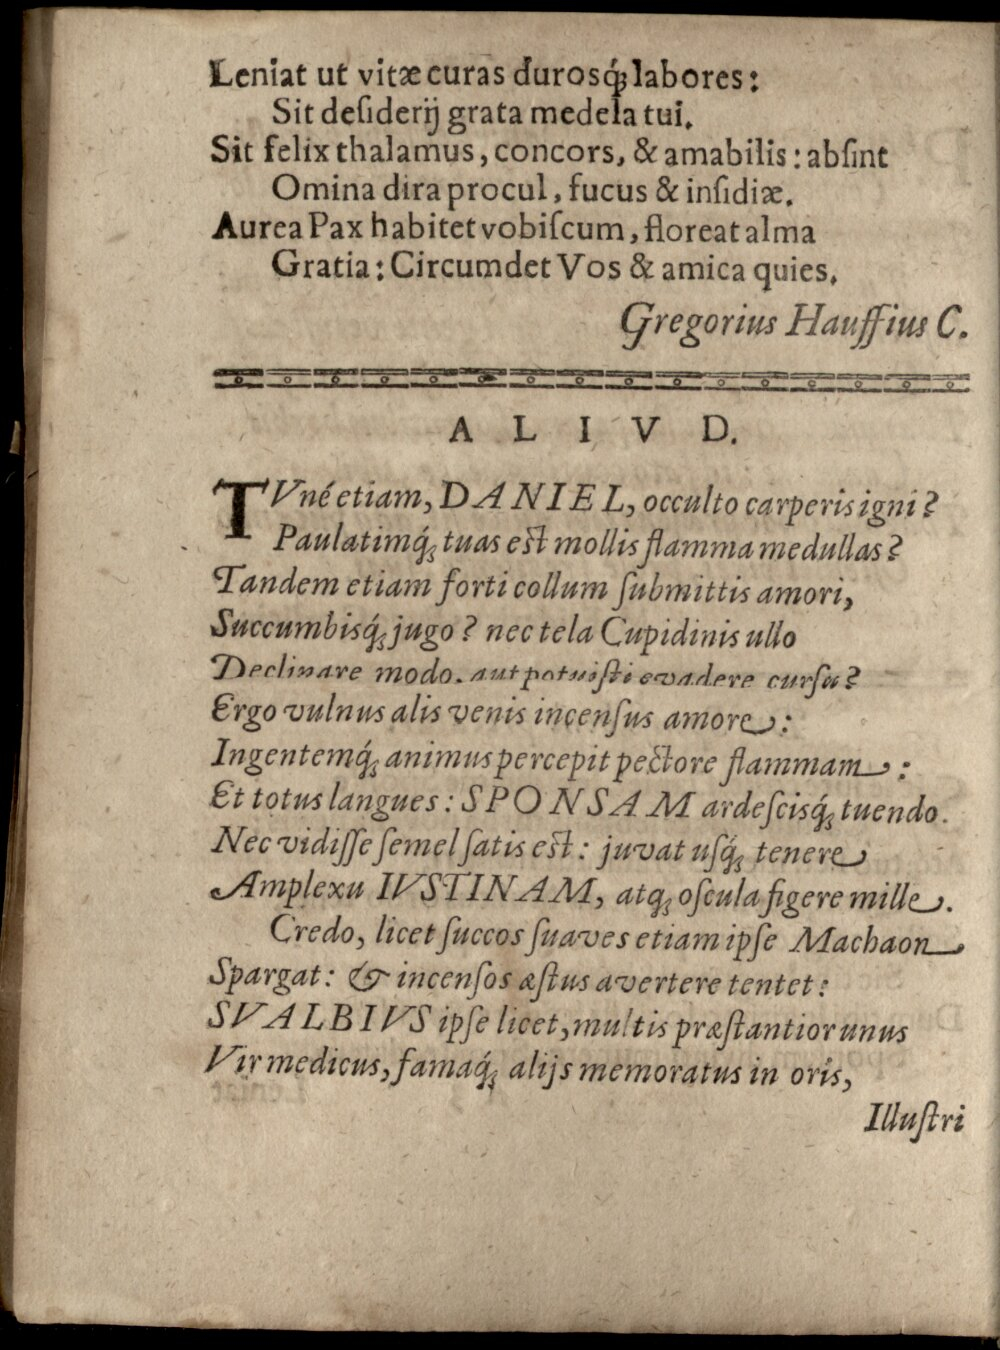 Leniat ut vitæ curas durosq́; labores:
Sit deſiderij grata medela tui.
Sit felix thalamus, concors, & amabilis: abſint
Omina dira procul, fucus & inſidiæ.
Aurea Pax habitet vobiſcum, floreat alma
Gratia: Circumdet Vos & amica quies.
Gregorius Hauffius C.
ALIVD.
TVné etiam, DANIEL, occulto carperis igni?
Paulatimq́; tuas est mollis flamma medullas?
Tandem etiam forti collum ſubmittis amori,
Succumbisq́; jugo? nec tela Cupidinis ullo
Declinare modo, aut potuiſti evadere curſu?
Ergo vulnus alis venis incenſus amore:
Ingentemq́; animus percepit pectore flammam:
Et totus langues: SPONSAM ardeſcisq́; tuendo.
Nec vidiſſe ſemel ſatis est: juvat uſq́; tenere
Amplexu IVSTINAM, atq; oſcula figere mille.
Credo, licet ſuccos ſuaves etiam ipſe Machaon
Spargat: & incenſos æſtus avertere tentet:
SVALBIVS ipſe licet, multis præſtantior unus
Vir medicus, famaq́; alijs memoratus in oris,
Illuſtri